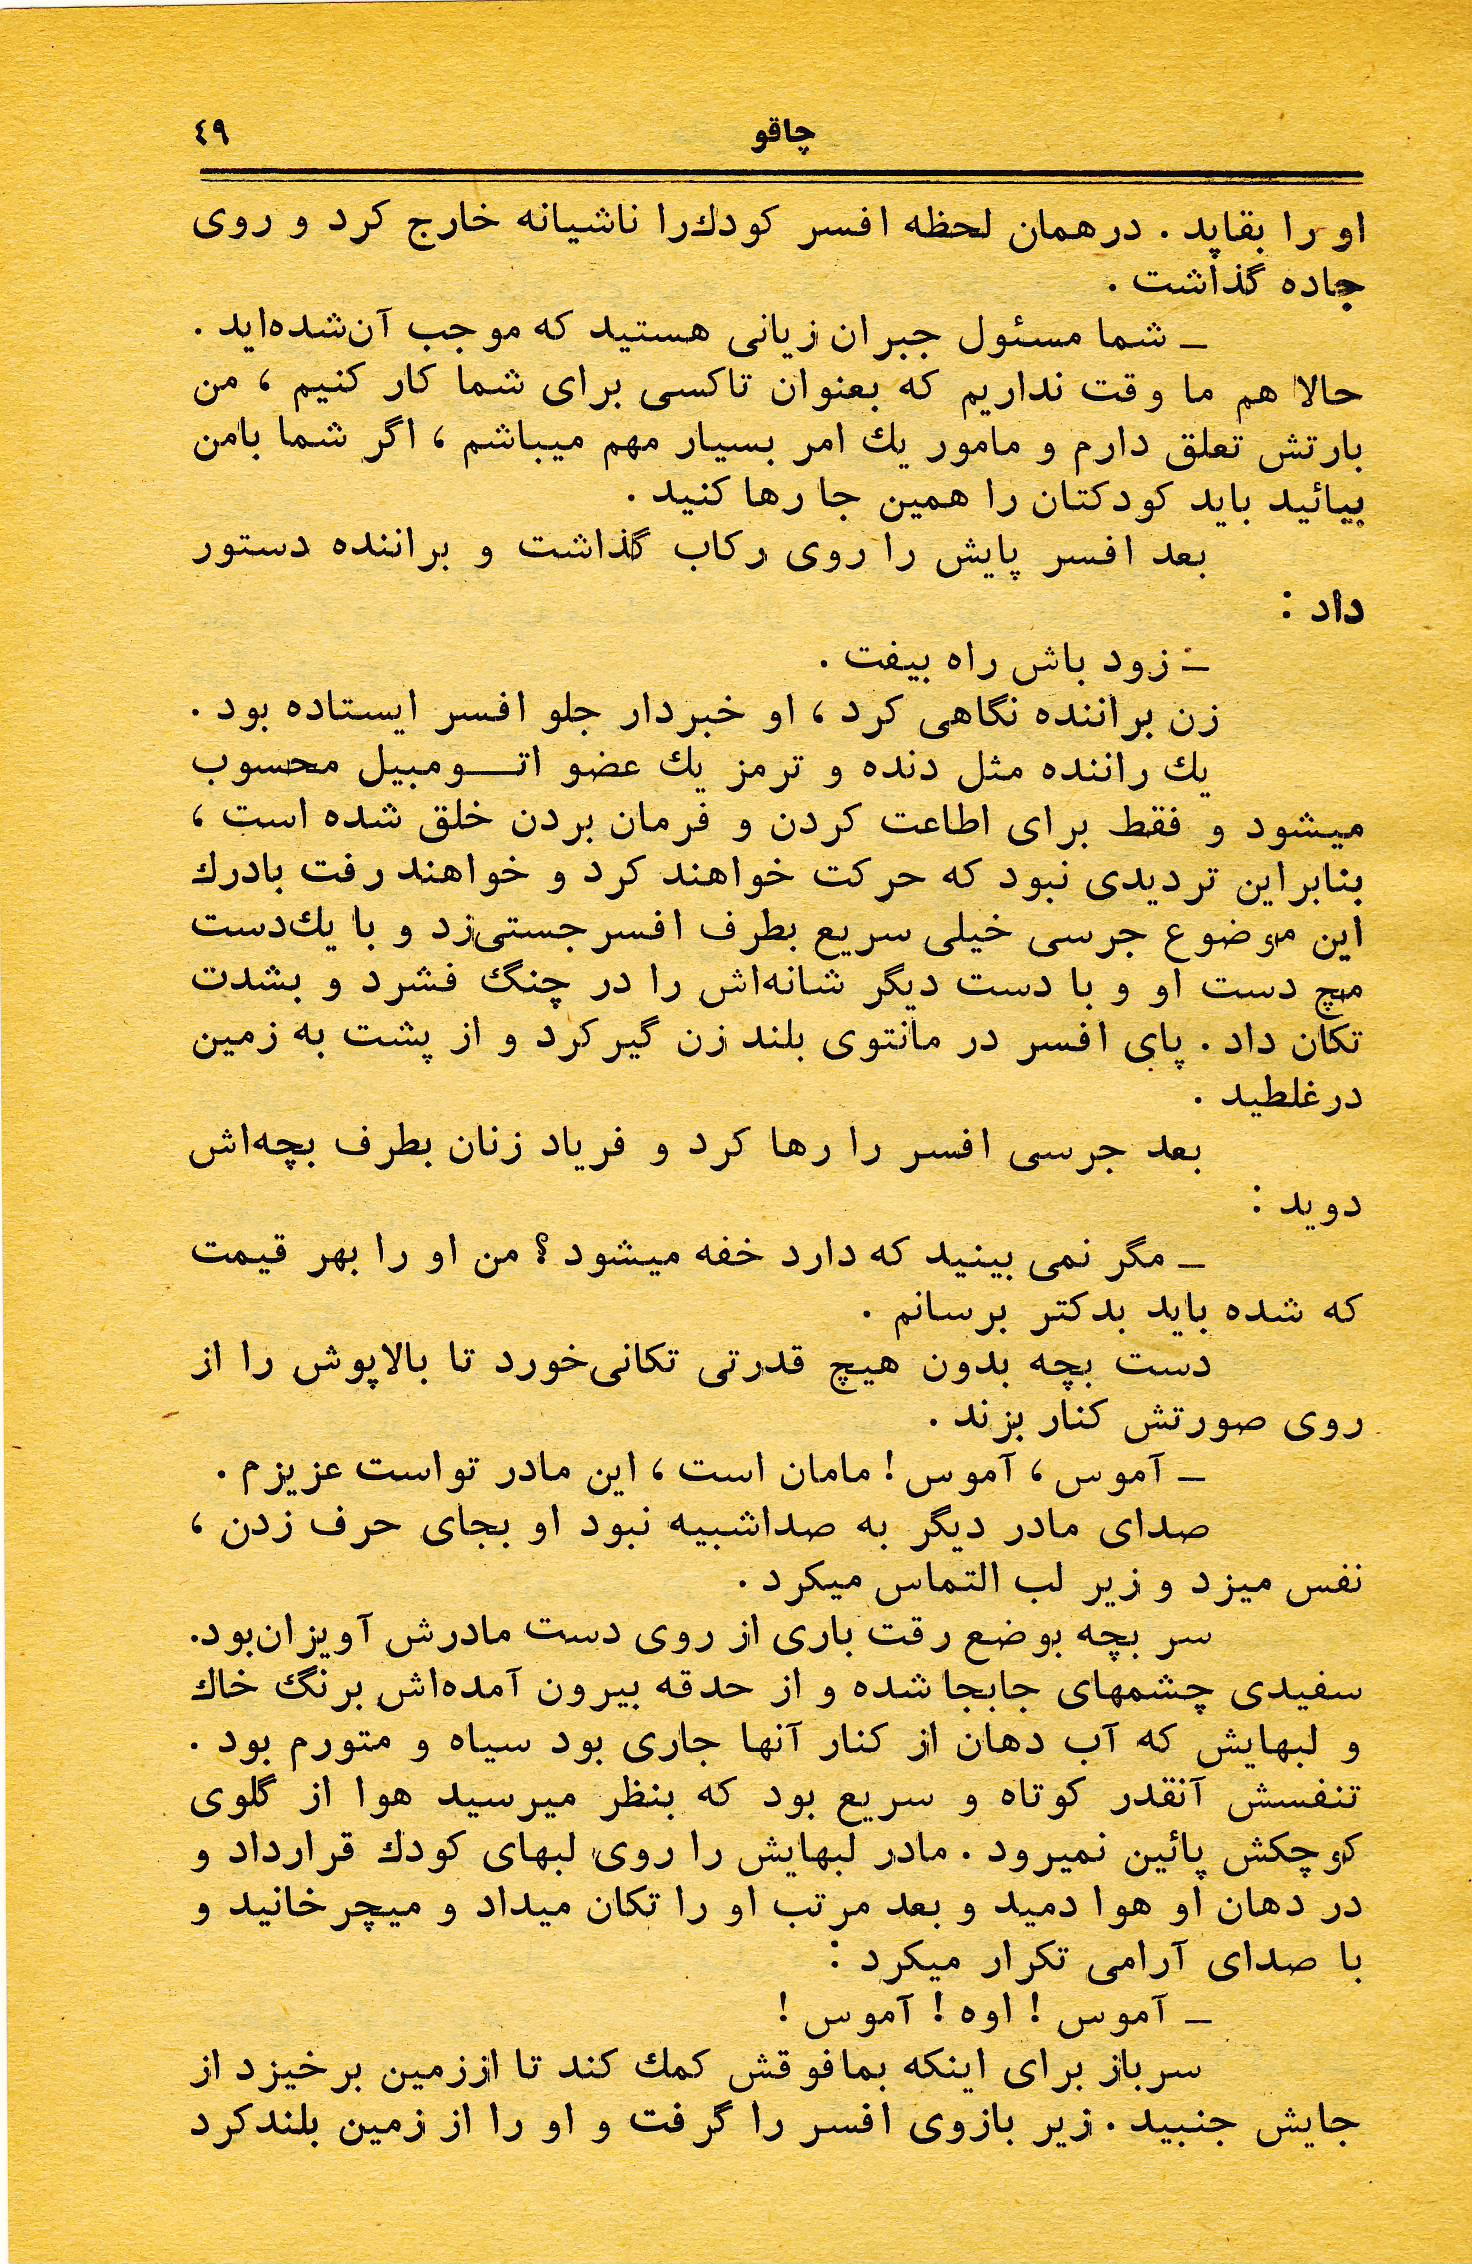 چاقو
٤٩
او را بقاپد . درهمان لحظه افسر کودك‌را ناشیانه خارج کرد و روی
جاده گذاشت .
ـ شما مسئول جبران زیانی هستید که موجب آن‌شده‌اید .
حالا هم ما وقت نداریم که بعنوان تاکسی برای شما کار کنیم ، من
بارتش تعلق دارم و مامور یك امر بسیار مهم میباشم ، اگر شما بامن
بیائید باید کودکتان را همین جا رها کنید .
بعد افسر پایش را روی رکاب گذاشت و براننده دستور
داد :
ـ زود باش راه بیفت .
زن براننده نگاهی کرد ، او خبردار جلو افسر ایستاده بود .
یك راننده مثل دنده و ترمز یك عضو اتـومبیل محسوب
میشود و فقط برای اطاعت کردن و فرمان بردن خلق شده است ،
بنابراین تردیدی نبود که حرکت خواهند کرد و خواهند رفت بادرك
این موضوع جرسی خیلی سریع بطرف افسر جستی‌زد و با یك‌دست
مچ دست او و با دست دیگر شانه‌اش را در چنگ فشرد و بشدت
تکان داد . پای افسر در مانتوی بلند زن گیر کرد و از پشت به زمین
درغلطید .
بعد جرسی افسر را رها کرد و فریاد زنان بطرف بچه‌اش
دوید :
ـ مگر نمی بینید که دارد خفه میشود ؟ من او را بهر قیمت
که شده باید بدکتر برسانم .
دست بچه بدون هیچ قدرتی تکانی‌خورد تا بالاپوش را از
روی صورتش کنار بزند .
ـ آموس ، آموس ! مامان است ، این مادر تواست عزیزم .
صدای مادر دیگر به صداشبیه نبود او بجای حرف زدن ،
نفس میزد و زیر لب التماس میکرد .
سر بچه بوضع رقت باری از روی دست مادرش آویزان‌بود.
سفیدی چشمهای جابجا شده و از حدقه بیرون آمده‌اش برنگ خاك
و لبهایش که آب دهان از کنار آنها جاری بود سیاه و متورم بود .
تنفسش آنقدر کوتاه و سریع بود که بنظر میرسید هوا از گلوی
کوچکش پائین نمیرود . مادر لبهایش را روی لبهای کودك قرارداد و
در دهان او هوا دمید و بعد مرتب او را تکان میداد و میچرخانید و
با صدای آرامی تکرار میکرد :
ـ آموس ! اوه ! آموس !
سرباز برای اینکه بمافوقش کمك کند تا اززمین برخیزد از
جایش جنبید . زیر بازوی افسر را گرفت و او را از زمین بلندکرد